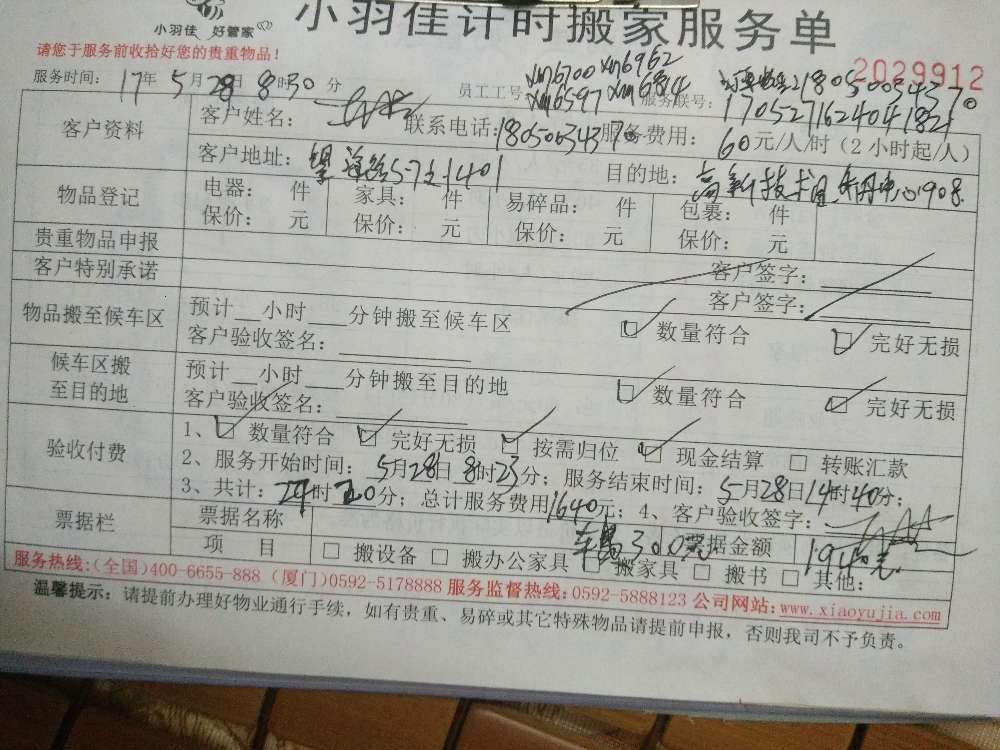 小羽佳 好管家
小羽佳计时搬家服务单
请您于服务前收拾好您的贵重物品！
2029912
服务时间： 17年 5月 28日 8时30分 员工工号： xm6700 xm6962 服务联号： 18050034370
xm6597 xm6984
客户资料 客户姓名： 联系电话：18050034370 服务费用： 60元/人/时（2小时起/人）
客户地址： 57 1401 目的地： 高新技术 1908
物品登记 电器： 件 家具： 件 易碎品： 件 包裹： 件
保价： 元 保价： 元 保价： 元 保价： 元
贵重物品申报 客户签字：
客户特别承诺 客户签字：
物品搬至候车区 预计__小时___分钟搬至候车区 ☑ 数量符合 ☑ 完好无损
客户验收签名：
候车区搬至目的地 预计__小时___分钟搬至目的地 ☑ 数量符合 ☑ 完好无损
客户验收签名：
验收付费 1、☑ 数量符合 ☑ 完好无损 ☑ 按需归位 ☑ 现金结算 □ 转账汇款
2、服务开始时间：5月28日8时23分；服务结束时间：5月28日14时40分；
3、共计： 时 20分；总计服务费用1640元；4、客户验收签字：
票据栏 票据名称 300 票据金额 1940元
项 目 □ 搬设备 □ 搬办公家具 □ 搬家具 □ 搬书 □ 其他：
服务热线:(全国)400-6655-888 (厦门)0592-5178888 服务监督热线:0592-5888123 公司网站:www.xiaoyujia.com
温馨提示：请提前办理好物业通行手续，如有贵重、易碎或其它特殊物品请提前申报，否则我司不予负责。